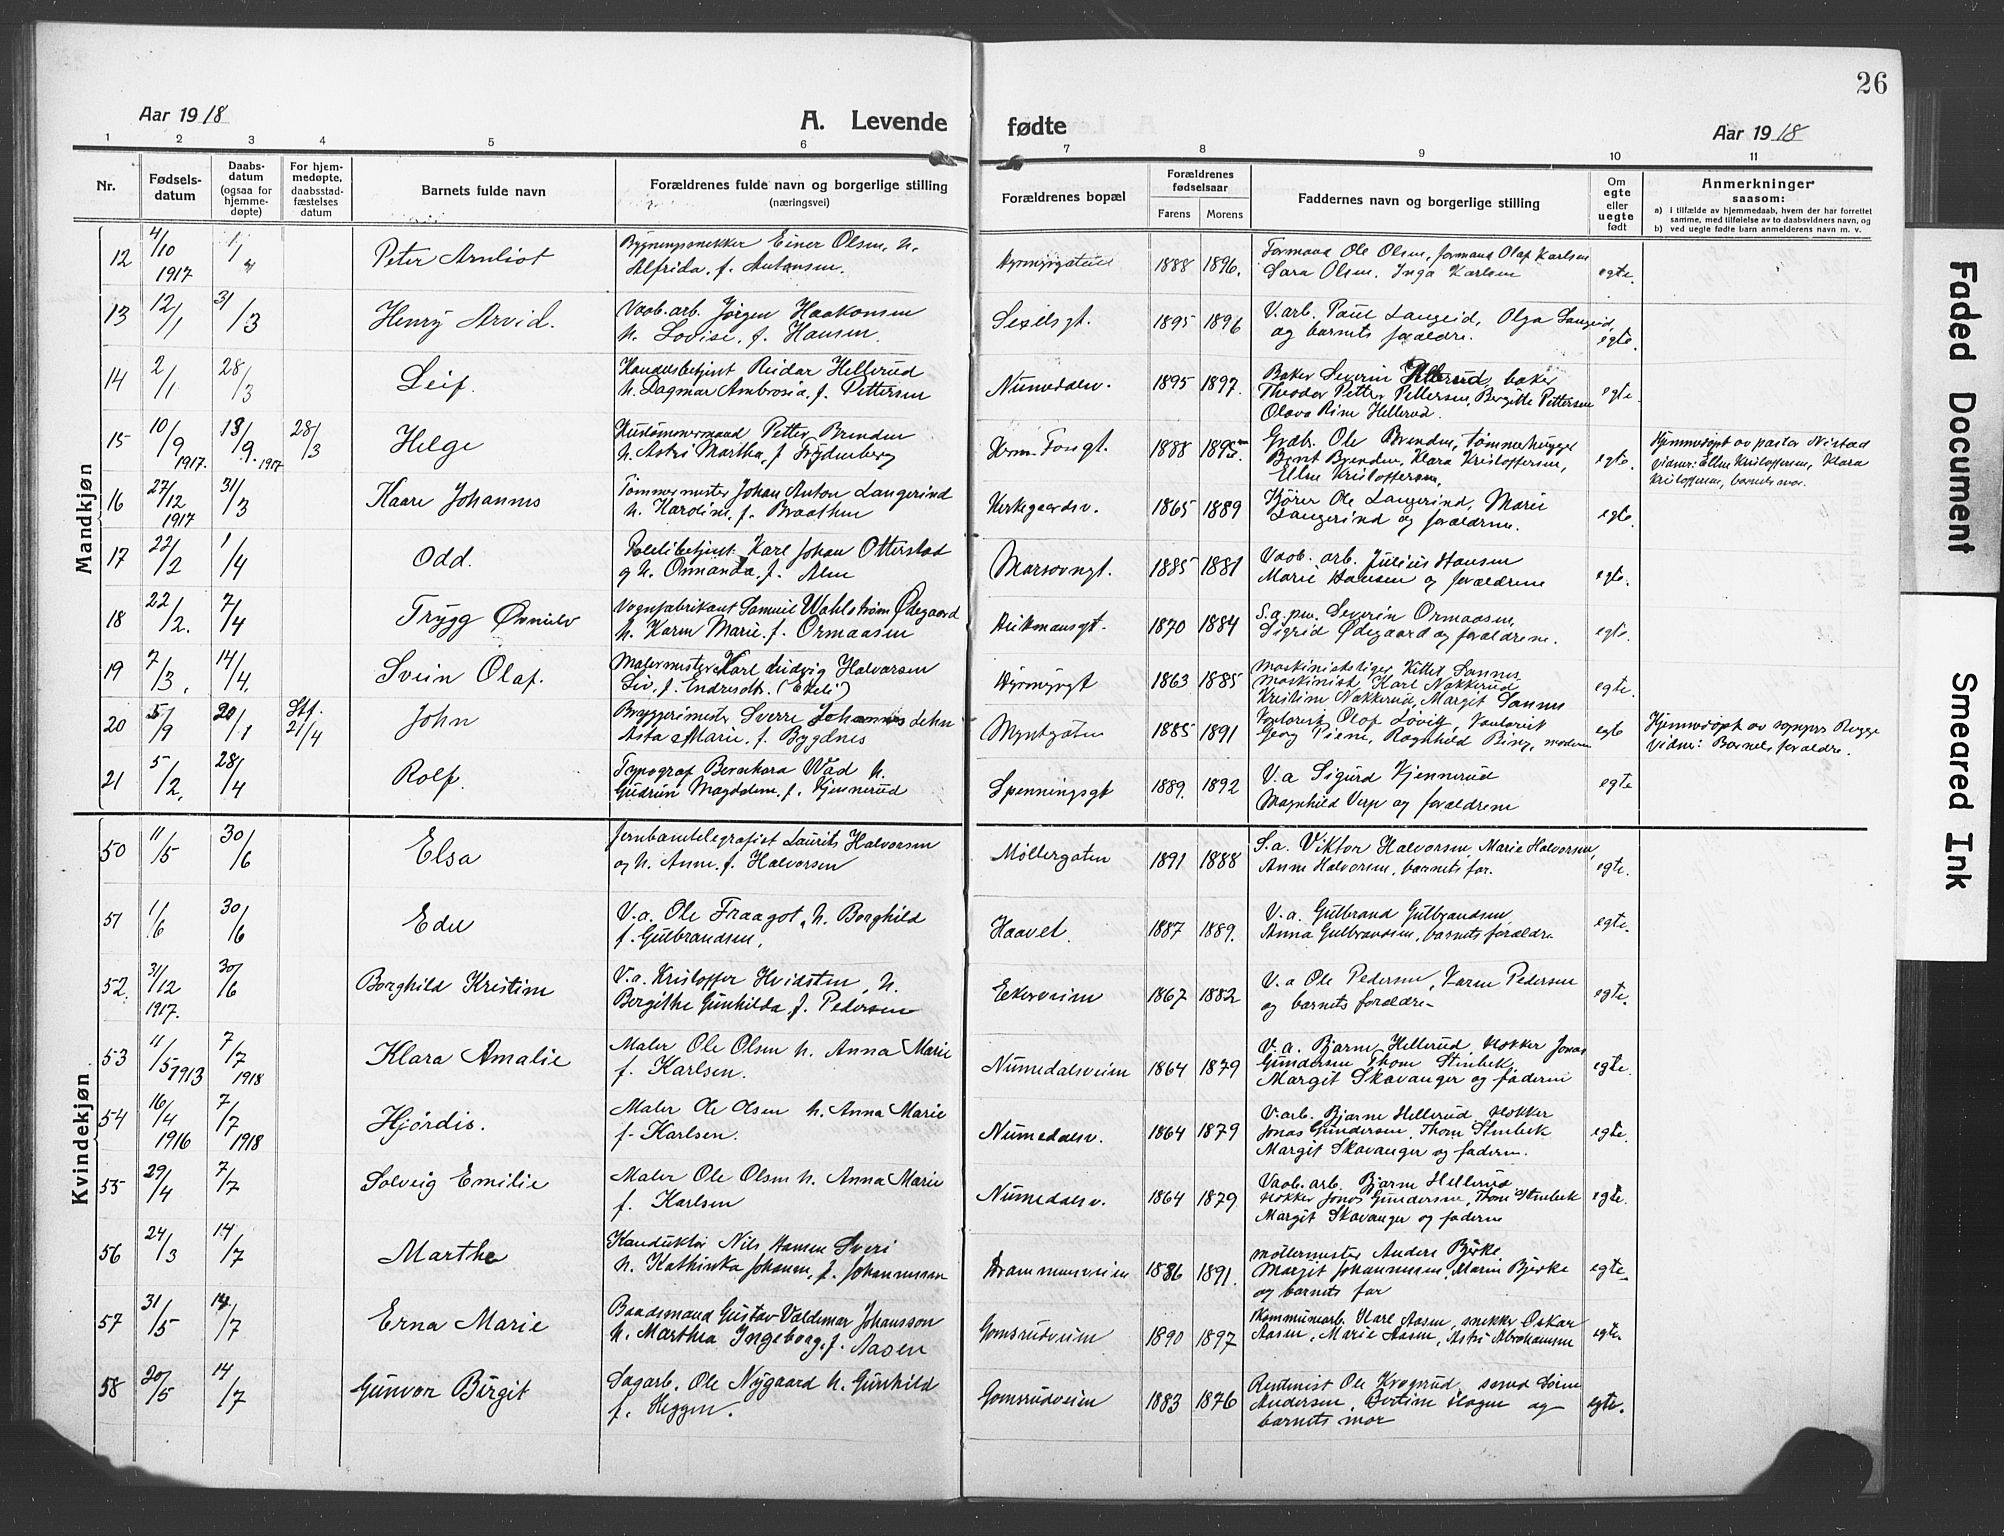 26
Aar 1918
A. Levende fødte
Aar 1918
1 2 3 4 5 6 7 8 9 10 11
Nr.
Fødsels-
datum
Daabs-
datum
(ogsaa for
hjemme-
døpte)
For hjem-
medøpte,
daabsstad-
fæstelses
datum
Barnets fulde navn
Forældrenes fulde navn og borgerlige stilling
(næringsvei)
Forældrenes bopæl
Forældrenes
fødselsaar
Farens Morens
Faddernes navn og borgerlige stilling
Om
egte
eller
uegte
født
Anmerkninger
saasom:
a) i tilfælde av hjemmedaab, hvem der har forrettet
samme, med tilføielse av to daabsvidners navn, og
b) ved uegte fødte barn anmelderens navn m. v.
Mandkjøn
12 4/10 1917 1/4 Peter Arnliot
Bygningssnekker Einer Olsen, h.
Alfrida, f. Antonsen.
1888 1896.
Formand Ole Olsen, formand Olaf Karlsen
Sara Olsen, Inga Karlsen
egte.
13 12/1 31/3 Henry Arvid.
Vaab. arb. Jørgen Haakonsen
h. Lovise, f. Hansen.
Sexesgt. 1895 1896
V. arb. Paul Langeid, Olga Langeid,
og barnets forældre.
egte.
14 2/1 28/3 Leif.
Handelsbetjent Reidar Hellerud
h. Dagmar Ambrosia, f. Pettersen
Numedalsv. 1895 1897.
Baker Severin Hellerud, baker
Theodor Petter Pettersen, Bergitte Pettersen
Olava Rine Hellerud.
egte.
15 10/9 1917. 13/9. 1917 28/3 Helge
Kustømmermand Petter Brenden
h. Astri Martha, f. Frydenberg
Herm. Fossgt. 1888 1895.
Grub. Ole Brenden, tømmerhugger
Bernt Brenden, Klara Kristoffersen,
Ellen Kristoffersen,
egte.
Hjemmedøpt av pastor Nistad
vidner: Ellen Kristoffersen, Klara
Kristoffersen, barnets mor.
16 27/12 1917 31/3 Kaare Johannes
Tømmermester Johan Anton Langerind
h. Karoline, f. Braathen
Kirkegaardsv. 1865 1889
Kjører Ole Langerind, Marie
Langerind og forældrene.
egte.
17 22/2 1/4 Odd.
Politibetjent Karl Johan Otterstad
og h. Ormanda, f. Alm
1885 1881
Vaab. arb. Julius Hansen
Marie Hansen og forældrene
egte.
18 22/2. 7/4 Trygg Øvniulv
Vognfabrikant Samuel Wahlstrøm Ødegaard
h. Karen Marie, f. Ormaasen
Heltmansgt. 1870 1884
S. a. pm. Severin Ormaasen,
Sigrid Ødegaard og forældrene.
egte.
19 7/3. 14/4. Svein Olaf.
Malermester Karl Ludvig Halvorsen
Liv, f. Endresdt. (Ekeli)
Hyrningsgt 1863 1885
Maskinistelöger Kittil Sannes
Maskinist Karl Nakkerud
Kristine Nakkerud, Margit Sannes
egte.
20 5/9 20/1 Stf. 21/4 John
Bryggerimester Sverre Johannes Lehn
Asta Marie, f. Bygdnes
Myntgaten 1885 1891
Kontorist Olaf Løvig, Kontorist
Georg Piene, Ragnhild Bing, moderen
egte
Hjemmedøpt av sogpr. Rygge
Vidner: Barnets forældre.
21 5/2. 28/4 Rolf.
Typograf Bernhard Wad h.
Gudrun Magdalene, f. Kjennerud
Spenningsgt 1889. 1892
V. a Sigurd Kjennerud
Magnhild Verp og forældrene
egte
Kvindekjøn
50 11/5 30/6 Elsa
Jernbanetelegrafist Laurits Halvorsen
og h. Anne, f. Halvorsen
Møllergaten 1891 1888
S. a. Viktor Halvorsen, Marie Halvorsen,
Anne Halvorsen, barnets far.
egte.
51 1/6 30/6 Edel
V. a. Ole Fraagot, h. Borghild
f. Gulbrandsen,
Haavet. 1887 1889.
V. a. Gulbrand Gulbrandsen
Anna Gulbrandsen, barnets forældre
egte.
52. 31/12 1917. 30/6 Borghild Kristine
V. a. Kristoffer Hvidsten, h.
Bergithe Gunhilda, f. Pedersen
Ekerveien 1867 1882
V. a Ole Pedersen, Karen Pedersen
og barnets forældre
egte.
53 11/5 1913 7/7 1918 Klara Amalie
Maler Ole Olsen h. Anna Marie
f. Karlsen.
Numedalsveien 1864 1879
V. a. Bjarne Hellerud, Hokker Jonas
Gundersen, Thom Stenbek,
Margit Skavanger og faderen
egte.
54 16/4 1916 7/7 1918 Hjørdis.
Maler Ole Olsen h. Anna Marie
f. Karlsen.
Numedalsv. 1864 1879
V. arb. Bjarne Hellerud, Hokker
Jonas Gundersen, Thom Stenbek
Margit Skavanger og faderen.
egte.
55 29/4 7/7 Solveig Emilie
Maler Ole Olsen h. Anna Marie
f. Karlsen
Numedalsv. 1864 1879
Vaab. arb. Bjarne Hellerud
Hokker Jonas Gundersen, Thom Stenbek
Margit Skavanger og faderen
egte.
56 24/3 14/7 Marthe
Konduktør Nils Hansen Sveri
h. Kathinka Johanne, f. Johannessen
Drammensveien 1886 1891.
Møllermester Anders Bjerke,
Margit Johannessen, Marie Bjerke
og barnets far
egte
57 31/5 14/7 Erna Marie
Baadsmand Gustav Valdemar Johansson
h. Marthea Ingeborg, f. Aasen
Gomsrudveien 1890 1897
Kommunearb. Karl Aasen, snekker Oskar
Aasen, Marie Aasen, Astri Abrahamsen
egte.
58 20/5 14/7 Gunvor Birgit
Sagarb. Ole Nygaard h. Gunhild
f. Heggen.
Gomsrudveien 1883 1876
Rentenist Ole Krogsrud, smed Søren
Andersen, Bertine Hagen og
barnets mor
egte.
Faded Document
Smeared Ink